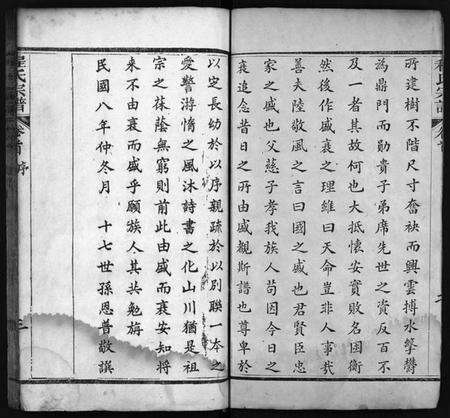 所建樹不階尺寸奮袂而興雲搏水擊鬱
為鼎門而勛貴子弟席先世之資反百不
及一者其故何也大抵懷安實敗名困衡
然後作盛衰之理雖曰天命豈非人事哉
善夫陸敬風之言曰國之盛也君賢臣忠
家之盛也父慈子孝我族人苟因今日之
衰追念昔日之所由盛觀斯譜也尊卑於
以定長幼於以序親疏於以別聯一本之
愛警游惰之風沐詩書之化山川猶是祖
宗之蔭無窮則前此由盛而衰安知將
來不由衰而盛乎願族人其共勉旃
民國八年仲冬月 十七世孫恩普敬譔
程氏宗譜
卷首
序
三